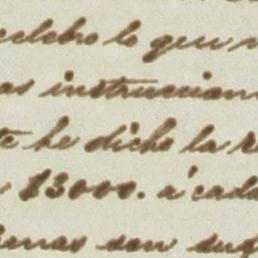 celebro lo que m
as instruccion
te he dicho la re
$3000. á cada
enas son suf